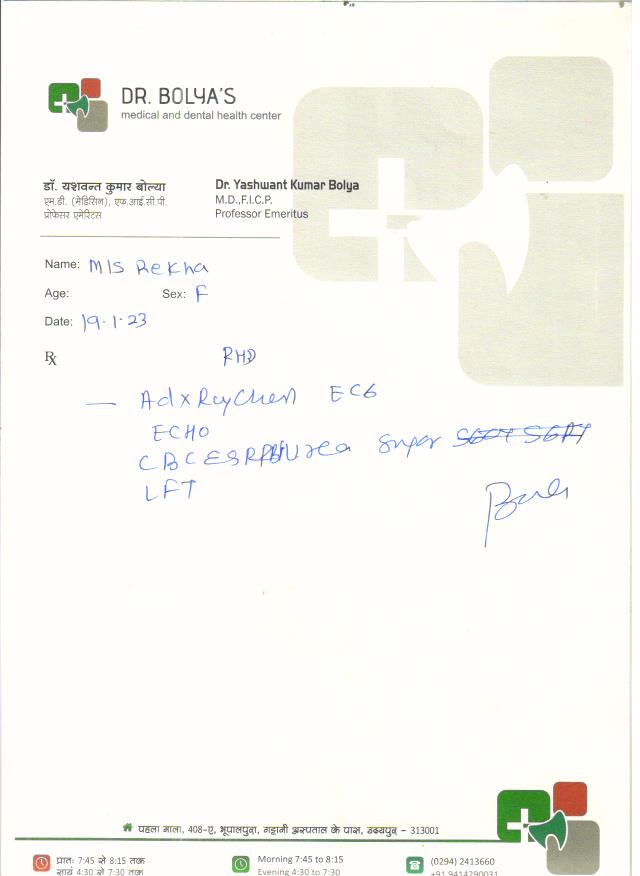 DR. BOLYA'S
medical and dental health center
डॉ. यशवन्त कुमार बोल्या
एम.डी. (मेडिसिन), एफ.आई.सी.पी.
प्रोफेसर एमेरिटस
Dr. Yashwant Kumar Bolya
M.D.,F.I.C.P.
Professor Emeritus
Name: M/S Rekha
Age: Sex: F
Date: 19.1.23
Rx
RHD
— Ad x Ray Chest ECG
ECHO
CBC ESR Urea Sugar SGOT SGPT
LFT
पहला माला, 408-ए, भूपालपुरा, मट्टानी अस्पताल के पास, उदयपुर - 313001
प्रातः 7:45 से 8:15 तक
सायं 4:30 से 7:30 तक
Morning 7:45 to 8:15
Evening 4:30 to 7:30
(0294) 2413660
+91 9414290031